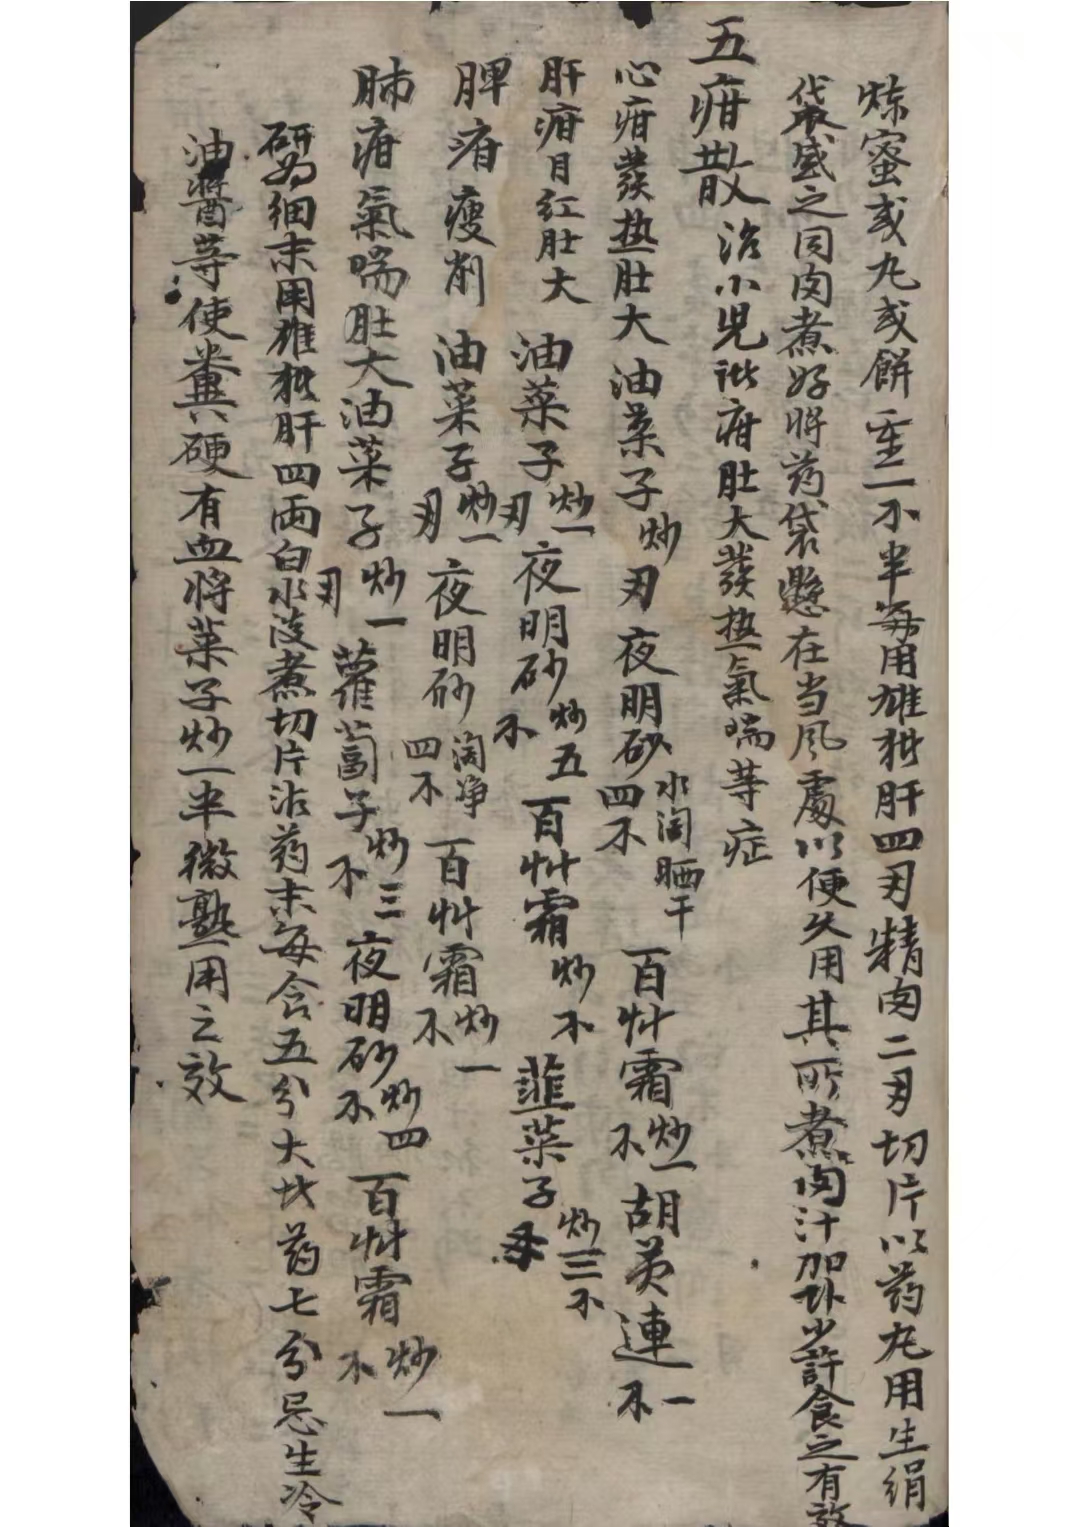 炼蜜或丸或餅重一不半每用雄雞肝四刄精肉二刄切片以药丸用生绢
袋盛之同肉煮好将药袋懸在当风處以便久用其所煮肉汁加外少許食之有效
五疳散治小児諸疳肚大發热氣喘等症
心疳發热肚大油菜子炒刄夜明砂水淘晒干四不百艸霜炒一不胡黄連一不
肝疳目红肚大油菜子炒一刄夜明砂炒五不百艸霜炒不韮菜子炒三不
脾疳瘦削油菜子炒一刄夜明砂淘净四不百艸霜炒一不
肺疳氣喘肚大油菜子炒一刄蘿蔔子炒三不夜明砂炒四不百艸霜炒一不
研为细末用雄雞肝四両白水煮切片沾药末每食五分大北药七分忌生冷
油醬等使糞硬有血将菜子炒一半微熟用之效